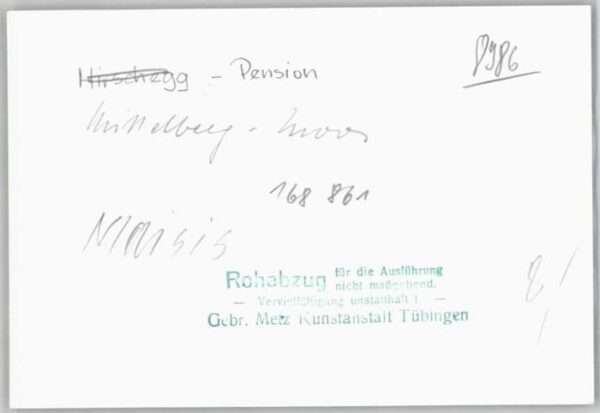 8986
Hirschegg - Pension
Mittelberg - Moos
168 861
Rohabzug für die Ausführung
nicht maßgebend.
— Vervielfältigung unstatthaft! —
Gebr. Metz Kunstanstalt Tübingen